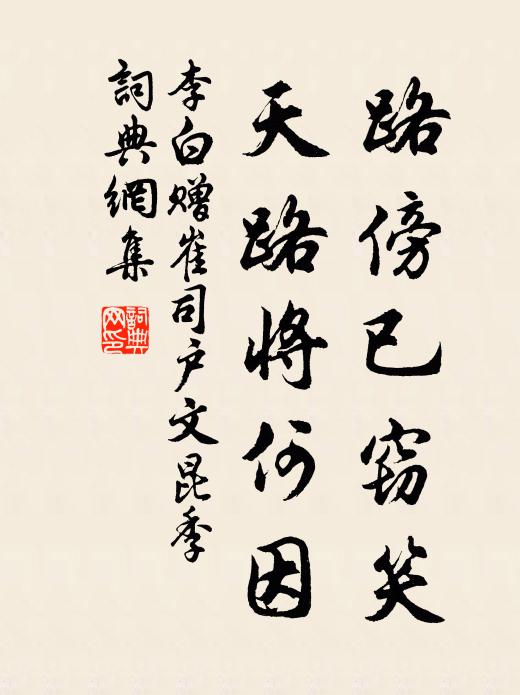 路傍已窃笑
天路将何因
李白赠崔司户文昆季
詞典網集
詞典网印